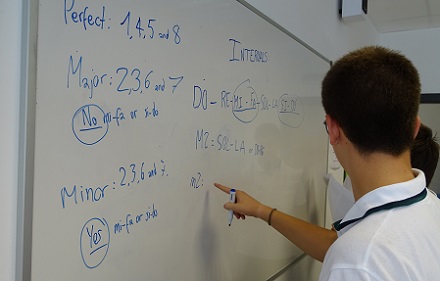 Perfect: 1,4,5 and 8
Major: 2,3,6 and 7
No mi-fa or si-do
Minor: 2,3,6 and 7.
Yes mi-fa or si-do
INTERVALS
DO - RE-MI-FA-SOL-LA SI-DO
M2 = SOL-LA
m2: